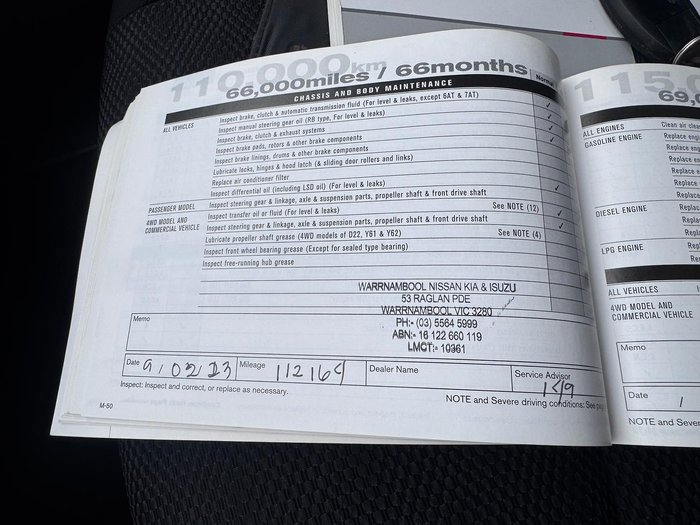 110,000km
66,000miles / 66months
Normal
CHASSIS AND BODY MAINTENANCE
ALL VEHICLES
Inspect brake, clutch & automatic transmission fluid (For level & leaks, except 6AT & 7AT) ✓
Inspect manual steering gear oil (RB type, For level & leaks)
Inspect brake, clutch & exhaust systems ✓
Inspect brake pads, rotors & other brake components ✓
Inspect brake linings, drums & other brake components
Lubricate locks, hinges & hood latch (& sliding door rollers and links)
Replace air conditioner filter
Inspect differential oil (including LSD oil) (For level & leaks) ✓
PASSENGER MODEL
Inspect steering gear & linkage, axle & suspension parts, propeller shaft & front drive shaft
4WD MODEL AND
COMMERCIAL VEHICLE
Inspect transfer oil or fluid (For level & leaks) See NOTE (12) ✓
Inspect steering gear & linkage, axle & suspension parts, propeller shaft & front drive shaft ✓
Lubricate propeller shaft grease (4WD models of D22, Y61 & Y62) See NOTE (4)
Inspect front wheel bearing grease (Except for sealed type bearing)
Inspect free-running hub grease
WARRNAMBOOL NISSAN KIA & ISUZU
53 RAGLAN PDE
WARRNAMBOOL VIC 3280
PH:- (03) 5564 5999
ABN:- 16 122 660 119
LMCT:- 10361
Memo
Date 9,02 23 Mileage 112164 Dealer Name Service Advisor
Inspect: Inspect and correct, or replace as necessary.
NOTE and Severe driving conditions: See pag
M-50
115,
69,0
ALL ENGINES
Clean air clea
GASOLINE ENGINE
Replace eng
Replace
Replace
Replace
DIESEL ENGINE
Repla
LPG ENGINE
ALL VEHICLES
4WD MODEL AND
COMMERCIAL VEHICLE
Memo
Date /
NOTE and Sever